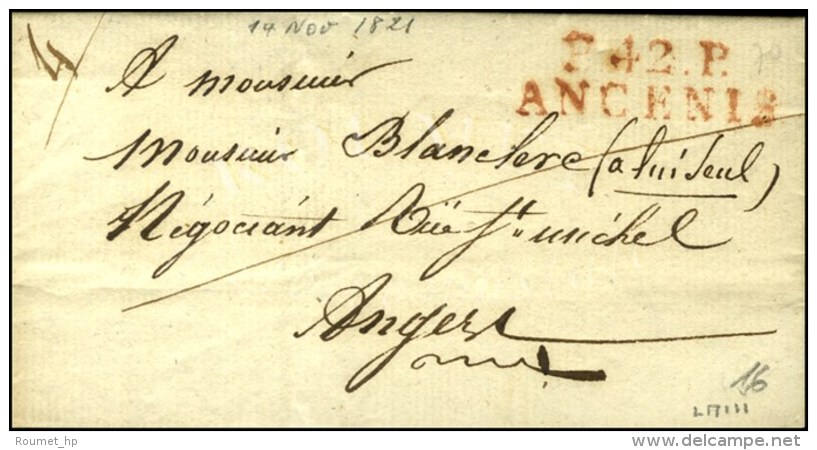 14 Nov 1821
P.42.P.
ANCENIS
A monsieur
Monsieur Blanclerc (a lui seul)
Négociant Rüe St michel
Angers
16
Roumet_hp
delcampe.net